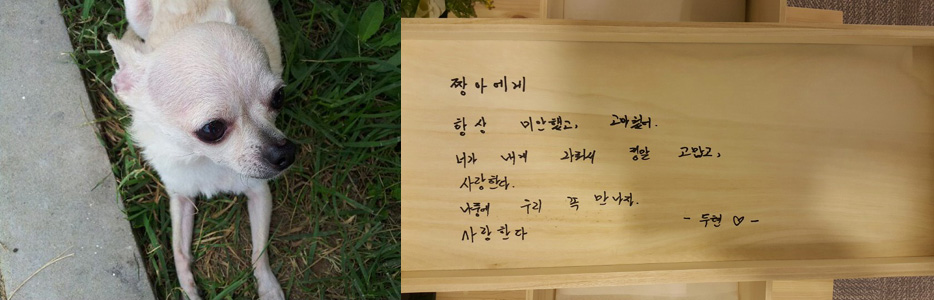 짱아에게
항상 미안했고, 고마웠어.
너가 내게 와줘서 정말 고맙고,
사랑한다.
나중에 우리 꼭 만나자.
사랑한다
- 두현 ♡ -